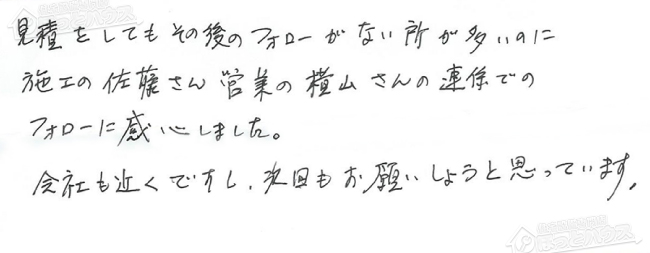 見積をしてもその後のフォローがない所が多いのに
施工の佐藤さん営業の横山さんの連係での
フォローに感心しました。
会社も近くですし、次回もお願いしようと思っています。